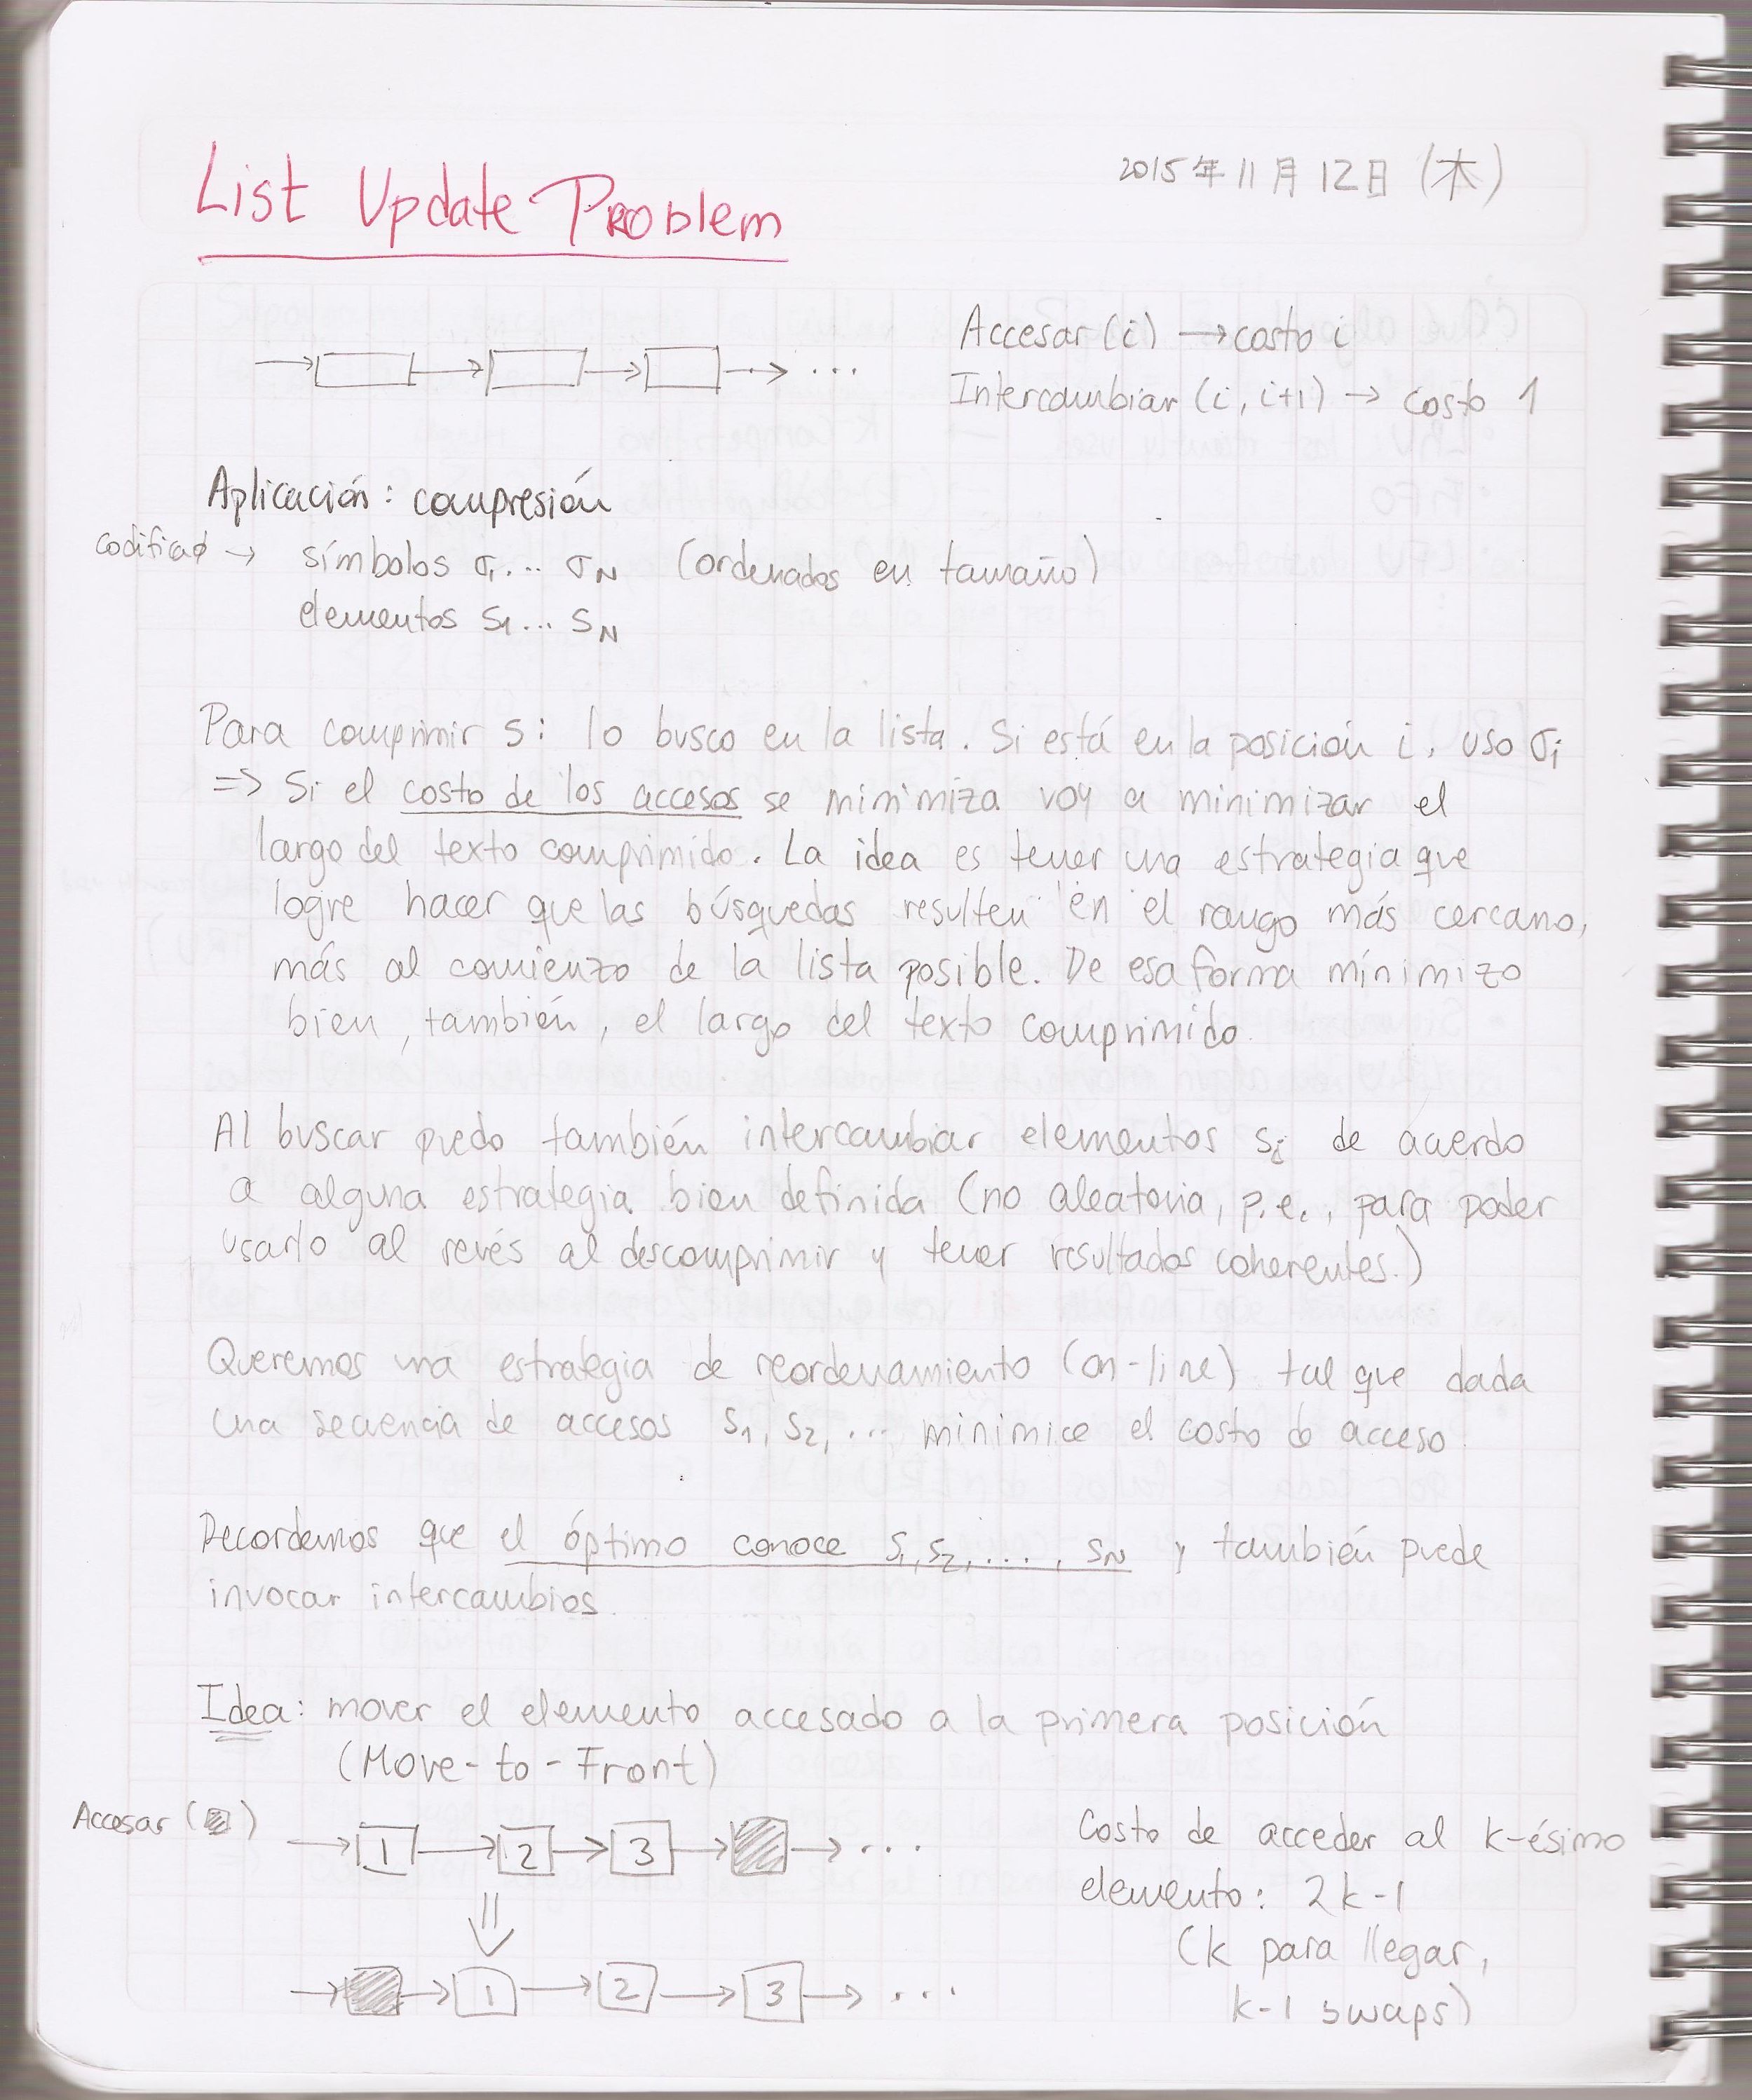 List Update Problem
2015年11月12日 (木)
Accesar (i) → costo i
Intercambiar (i, i+1) → costo 1
Aplicación: compresión
símbolos σ1... σN (ordenados en tamaño)
elementos s1... sN
Para comprimir s: lo busco en la lista. Si está en la posición i, uso σi
=> Si el costo de los accesos se minimiza voy a minimizar el
largo del texto comprimido. La idea es tener una estrategia que
logre hacer que las búsquedas resulten en el rango más cercano,
más al comienzo de la lista posible. De esa forma minimizo
bien, también, el largo del texto comprimido.
Al buscar puedo también intercambiar elementos si de acuerdo
a alguna estrategia bien definida (no aleatoria, p.e., para poder
usarlo al revés al descomprimir y tener resultados coherentes.)
Queremos una estrategia de reordenamiento (on-line) tal que dada
una secuencia de accesos s1, s2, ... minimice el costo de acceso.
Recordemos que el óptimo conoce s1, s2, ..., sN y también puede
invocar intercambios.
Idea: mover el elemento accesado a la primera posición
(Move-to-Front)
Accesar ( )
→ 1 → 2 → 3 → → ...
Costo de acceder al k-ésimo
elemento: 2k-1
(k para llegar,
k-1 swaps)
→ → 1 → 2 → 3 → ...